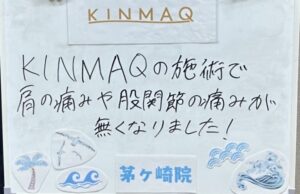 KINMAQ
KINMAQの施術で
肩の痛みや股関節の痛みが
無くなりました!
茅ヶ崎院